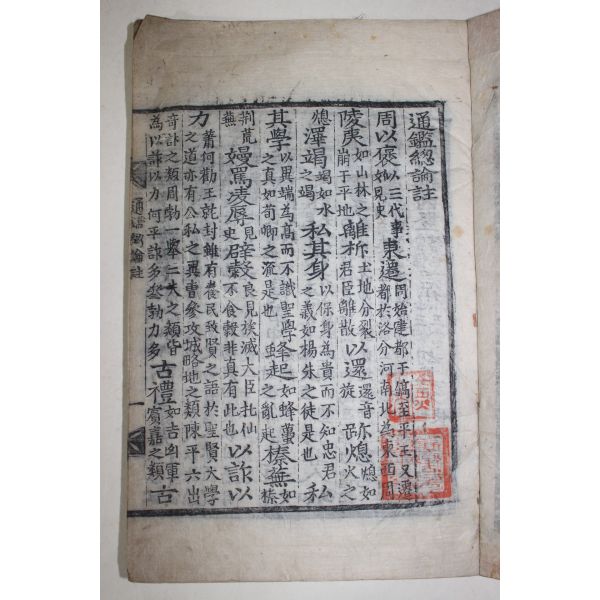 通鑑總論註
周以褒 以三代事 如見史 東遷 周始建都于鎬至平王又遷 都於洛分河南北為東西周
陵夷 如山林之 崩于平地 離析 土地分裂 君臣離散 以還 還音 旋 熄 如 火之
熄 澤竭 竭如水 之竭 私其身 以保身為貴而不知忠君 之義如楊朱之徒是也 私
其學 以異端為高而不識聖學 之真如荀卿之流是也 蜂起 如蜂蠆 之亂起 榛蕪 如榛
荊荒 蕪 嫚罵凌辱 見 史 辟穀 良見族滅大臣托仙 不食穀非真有此也 以詐以
力 蕭何勸王就封雖有養民致賢之語於聖賢大學 之道亦有公私之異曹參攻城略地之類陳平六出
奇計之類周勃一举二夫之類皆 為以詐以力何平詐多勃力多 古禮 如吉凶軍 賓嘉之類 古
通鑑總論註
一